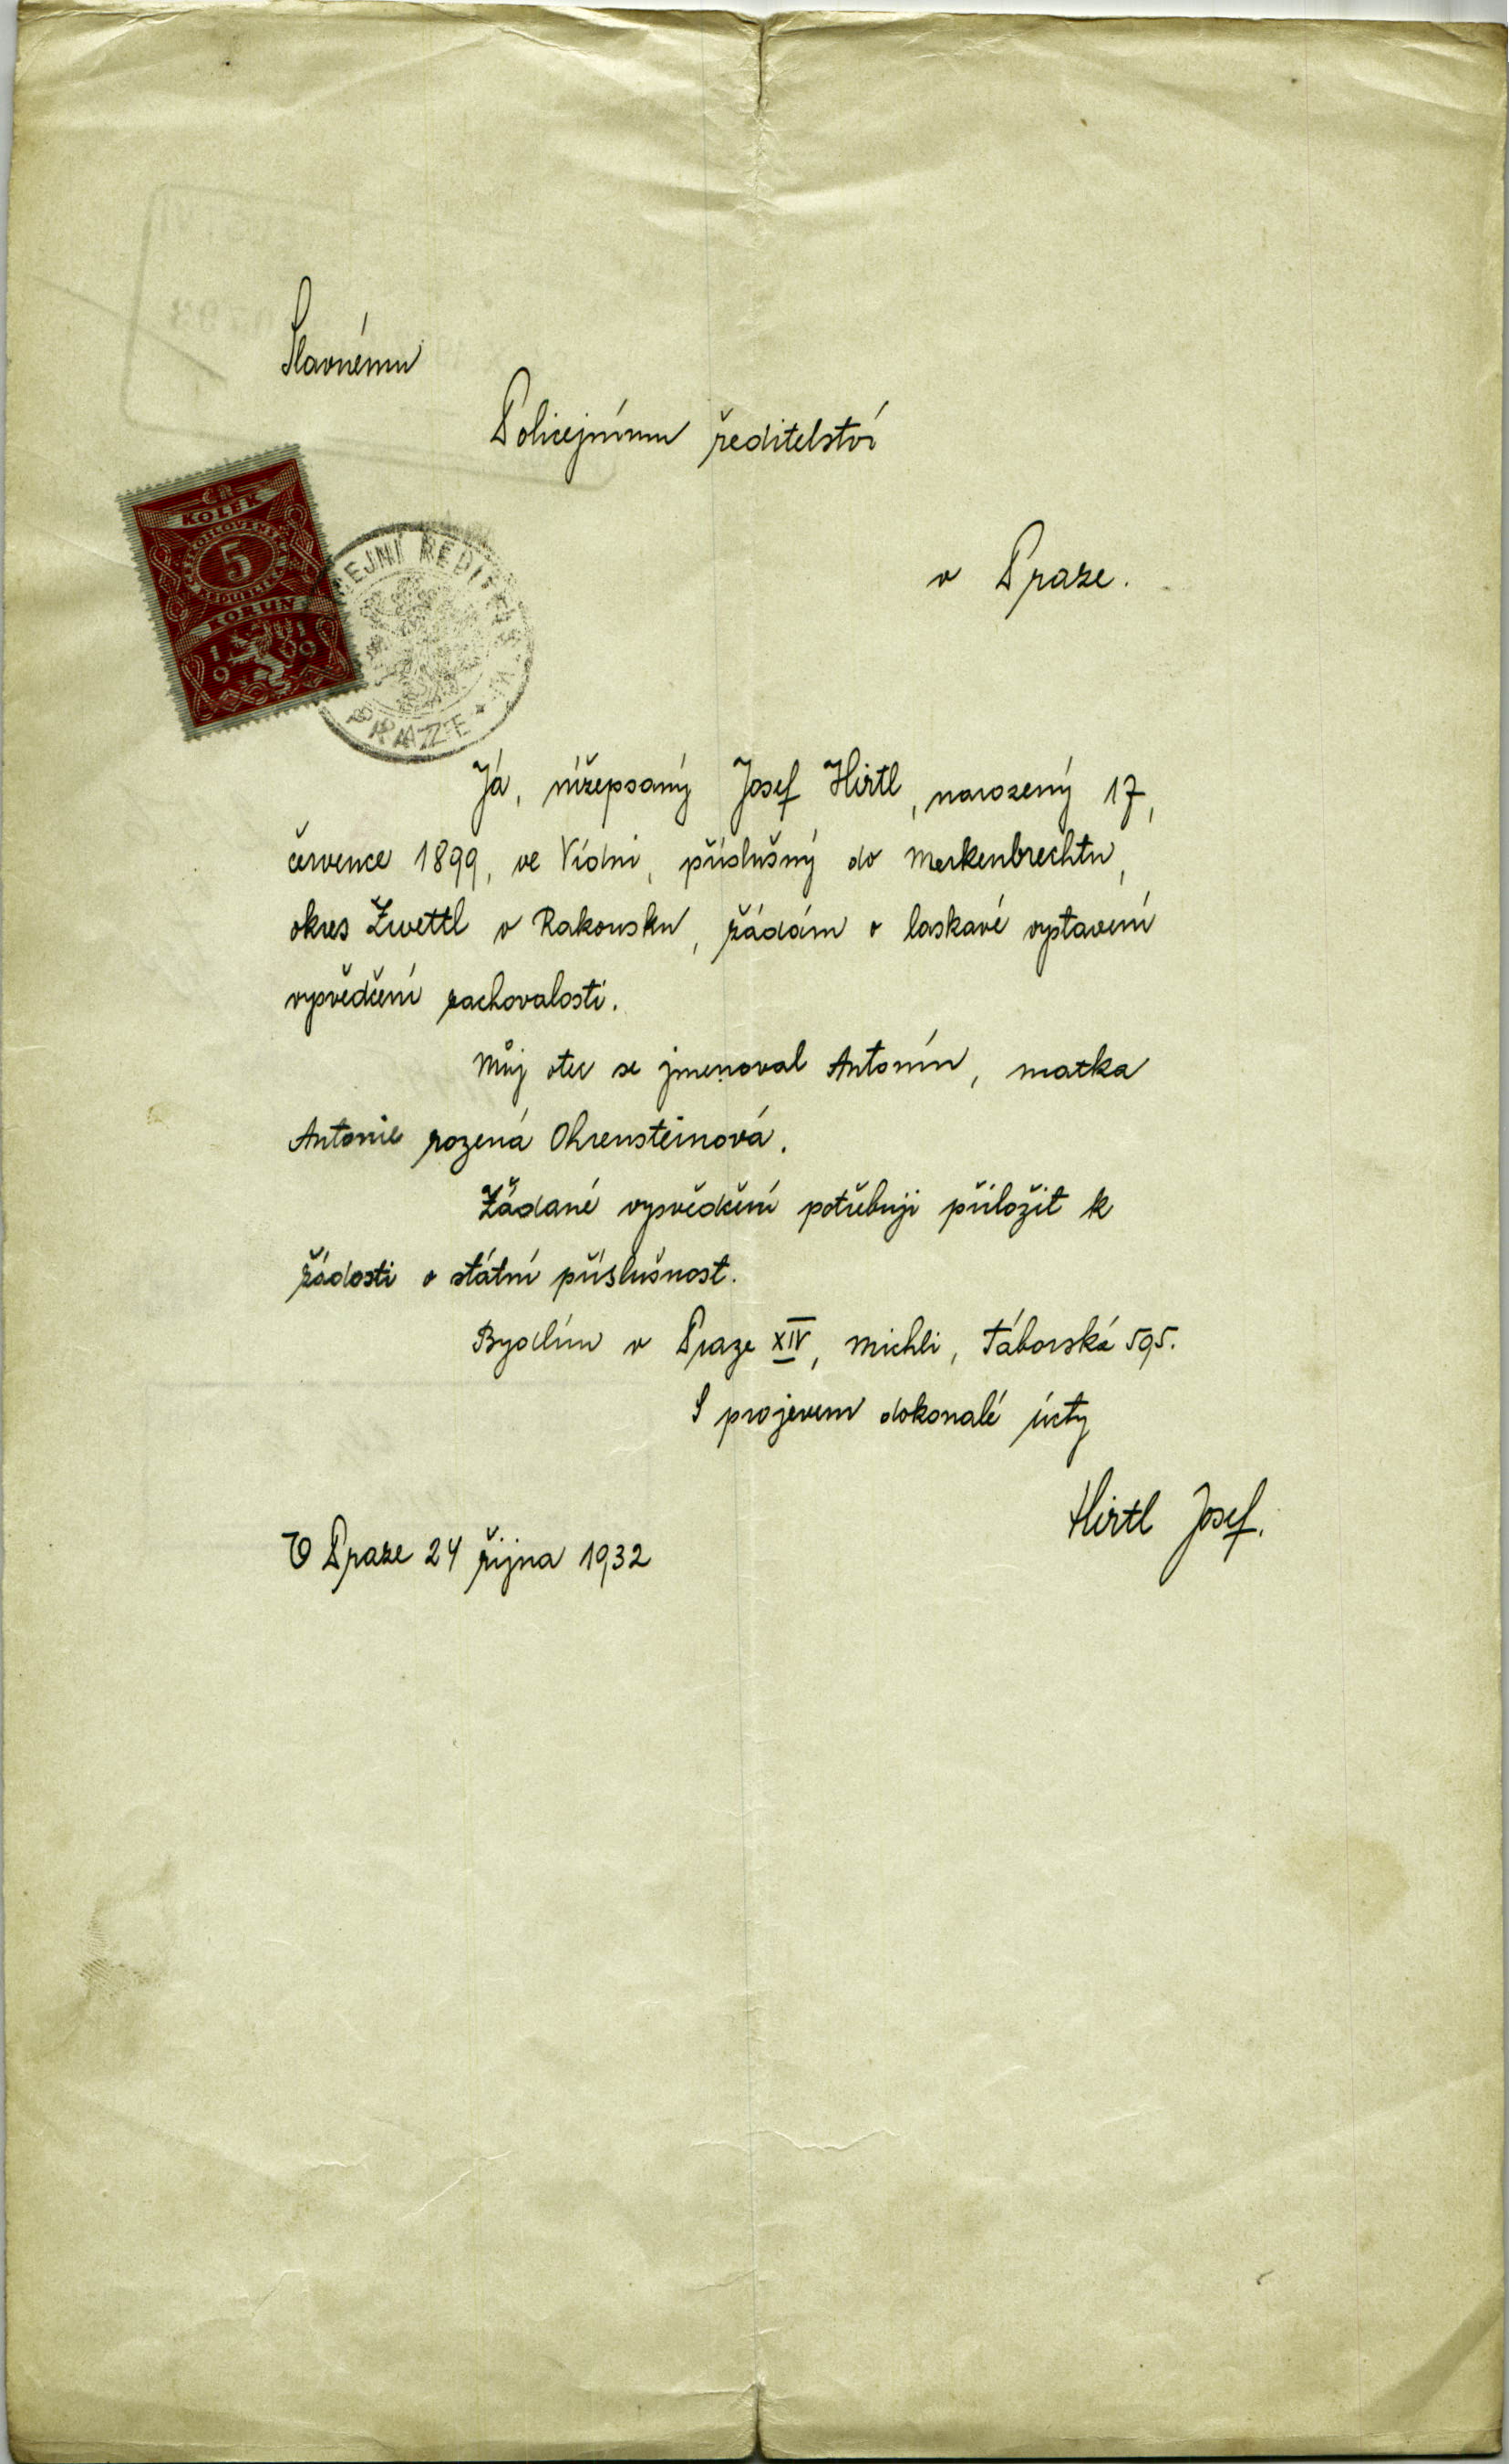 Slavnému
Policejnímu ředitelství
v Praze.
ČR
KOLEK
5
KORUN
1919
EJNÍ ŘEDITEL
PRAZE
Já, nížepsaný Josef Hirtl, narozený 17,
července 1899, ve Vídni, příslušný do Merkenbrechtu,
okres Zwettl v Rakousku, žádám o laskavé vystavení
vysvědčení zachovalosti.
Můj otec se jmenoval Antonín, matka
Antonie rozená Ohrensteinová.
Žádané vysvědčení potřebuji přiložit k
žádosti o státní příslušnost.
Bydlím v Praze XIV, Michli, Táborská 595.
S projevem dokonalé úcty
Hirtl Josef.
V Praze 24 října 1932